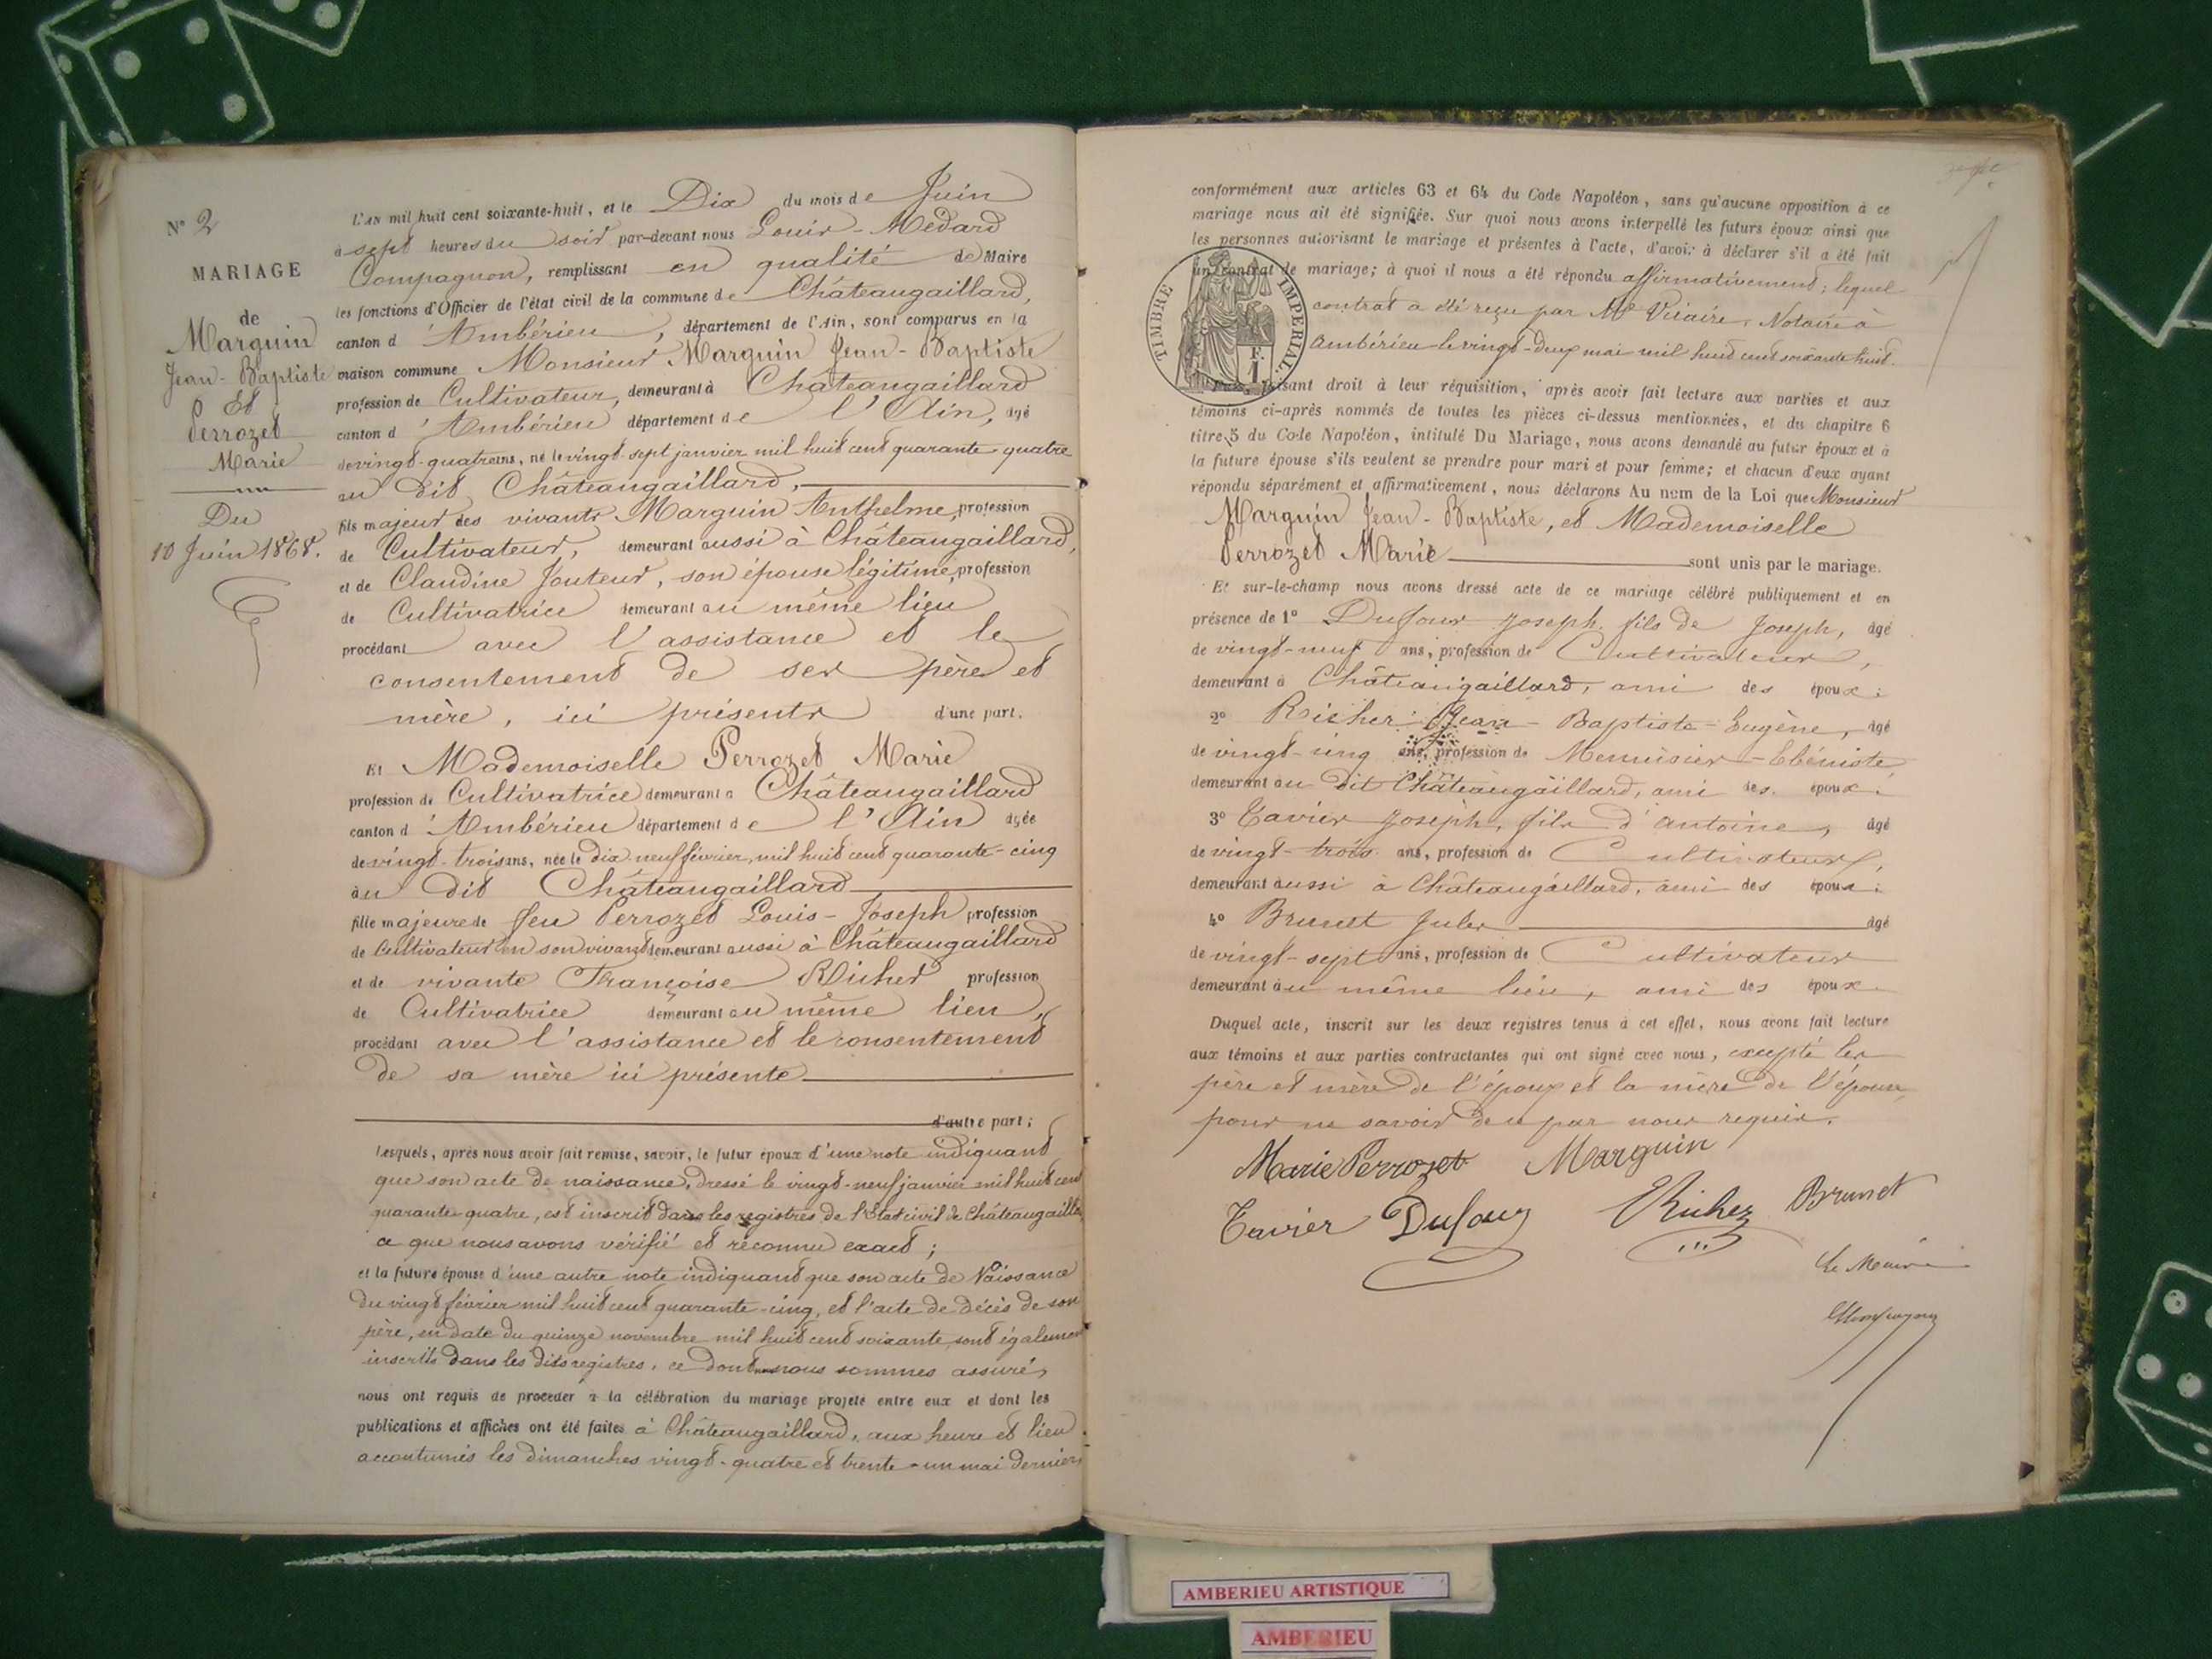 N° 2
MARIAGE
de
Marguin
Jean-Baptiste
Et
Perrozet
Marie
Du
10 Juin 1868.
L'AN mil huit cent soixante-huit, et le Dix du mois de Juin
à sept heures du soir par-devant nous Louis-Médard
Compagnon, remplissant en qualité de Maire
les fonctions d'Officier de l'état civil de la commune de Châteaugaillard,
canton d'Ambérieu, département de l'Ain, sont comparus en la
maison commune Monsieur Marguin Jean-Baptiste
profession de Cultivateur, demeurant à Châteaugaillard
canton d'Ambérieu département de l'Ain, âgé
de vingt-quatre ans, né le vingt-sept janvier mil huit cent quarante-quatre
au dit Châteaugaillard,
fils majeur des vivants Marguin Anthelme, profession
de Cultivateur, demeurant aussi à Châteaugaillard,
et de Claudine Jouteur, son épouse légitime, profession
de Cultivatrice demeurant au même lieu
procédant avec l'assistance et le
consentement de ses père et
mère, ici présents d'une part.
Et Mademoiselle Perrozet Marie
profession de Cultivatrice demeurant à Châteaugaillard
canton d'Ambérieu département de l'Ain âgée
de vingt-trois ans, née le dix-neuf février, mil huit cent quarante-cinq
au dit Châteaugaillard
fille majeure de feu Perrozet Louis-Joseph profession
de Cultivateur en son vivant demeurant aussi à Châteaugaillard
et de vivante Françoise Richer profession
de Cultivatrice demeurant au même lieu,
procédant avec l'assistance et le consentement
de sa mère ici présente
d'autre part;
Lesquels, après nous avoir fait remise, savoir, le futur époux d'une note indiquant
que son acte de naissance, dressé le vingt-neuf janvier mil huit cent
quarante-quatre, est inscrit dans les registres de l'Etat civil de Châteaugaillard
ce que nous avons vérifié et reconnu exact;
et la future épouse d'une autre note indiquant que son acte de Naissance
du vingt février mil huit cent quarante-cinq, et l'acte de décès de son
père, en date du quinze novembre mil huit cent soixante, sont également
inscrits dans les dits registres, ce dont nous sommes assuré,
nous ont requis de procéder à la célébration du mariage projeté entre eux et dont les
publications et affiches ont été faites à Châteaugaillard, aux heure et lieu
accoutumés les dimanches vingt-quatre et trente-un mai derniers
conformément aux articles 63 et 64 du Code Napoléon, sans qu'aucune opposition à ce
mariage nous ait été signifiée. Sur quoi nous avons interpellé les futurs époux ainsi que
les personnes autorisant le mariage et présentes à l'acte, d'avoir à déclarer s'il a été fait
un contrat de mariage; à quoi il nous a été répondu affirmativement; lequel
contrat a été reçu par Me Vicaire, Notaire à
Ambérieu le vingt-deux mai mil huit cent soixante huit.
TIMBRE IMPERIAL
F. 1
faisant droit à leur réquisition, après avoir fait lecture aux parties et aux
témoins ci-après nommés de toutes les pièces ci-dessus mentionnées, et du chapitre 6
titre 5 du Code Napoléon, intitulé Du Mariage, nous avons demandé au futur époux et à
la future épouse s'ils veulent se prendre pour mari et pour femme; et chacun d'eux ayant
répondu séparément et affirmativement, nous déclarons Au nom de la Loi que Monsieur
Marguin Jean-Baptiste, et Mademoiselle
Perrozet Marie sont unis par le mariage.
Et sur-le-champ nous avons dressé acte de ce mariage célébré publiquement et en
présence de 1° Dufour Joseph, fils de Joseph, âgé
de vingt-neuf ans, profession de Cultivateur,
demeurant à Châteaugaillard, ami des époux;
2° Richer Jean-Baptiste-Eugène, âgé
de vingt-cinq ans, profession de Menuisier-Ebéniste
demeurant au dit Châteaugaillard, ami des époux.
3° Tavier Joseph, fils d'Antoine, âgé
de vingt-trois ans, profession de Cultivateur,
demeurant aussi à Châteaugaillard, ami des époux;
4° Brunet Jules âgé
de vingt-sept ans, profession de Cultivateur
demeurant au même lieu, ami des époux.
Duquel acte, inscrit sur les deux registres tenus à cet effet, nous avons fait lecture
aux témoins et aux parties contractantes qui ont signé avec nous, excepté les
père et mère de l'époux et la mère de l'épouse,
pour ne savoir de ce par nous requis.
Marie Perrozet Marguin
Tavier Dufour Richer Brunet
Le Maire
Compagnon
AMBERIEU ARTISTIQUE
AMBERIEU